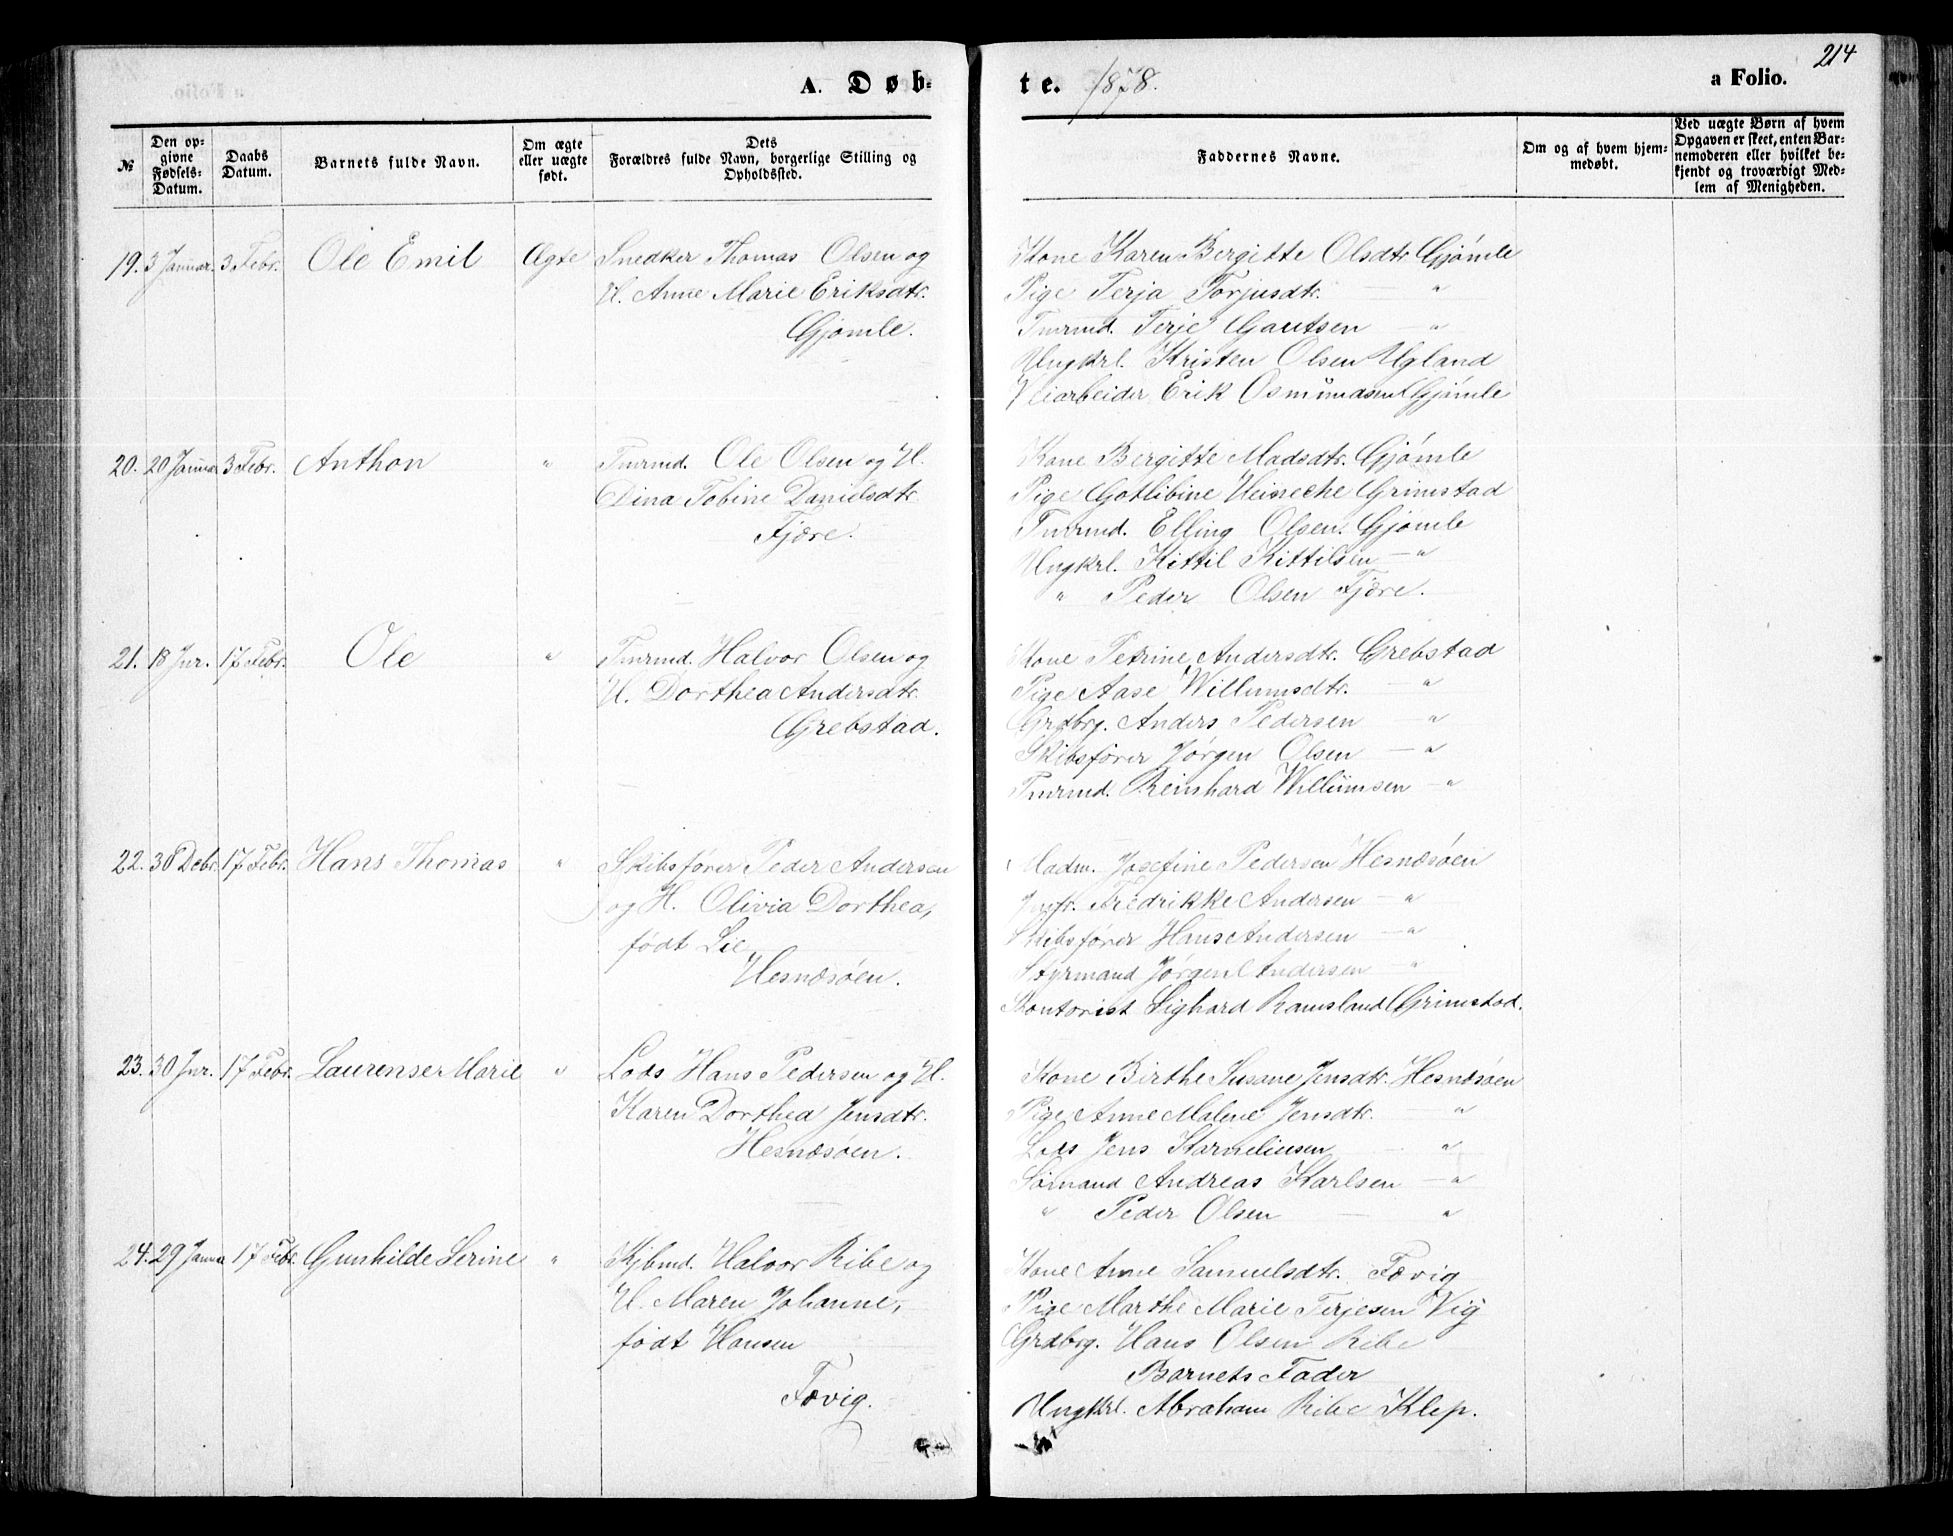 214
A. Døb-
te. 1878.
a Folio.
№
Den op-
givne
Fødsels-
Datum.
Daabs
Datum.
Barnets fulde Navn.
Om ægte
eller uægte
født.
Dets
Forældres fulde Navn, borgerlige Stilling og
Opholdssted.
Faddernes Navne.
Om og af hvem hjem-
medøbt.
Ved uægte Børn af hvem
Opgaven er skeet, enten Bar-
nemoderen eller hvilket be-
kjendt og troværdigt Med-
lem af Menigheden.
19. 3 Januar. 3 Febr. Ole Emil Ægte Snedker Thomas Olsen og
H. Anne Marie Eriksdtr.
Gjømle.
Kone Karen Bergitte Olsdtr Gjømle
Pige Terja Torjusdtr. "
Tmrmd. Terje Gautsen — "
Ungkrl. Kristen Olsen Ugland
Veiarbeider Erik Osmundsen Gjømle
20. 20 Januar 3 Febr. Anthon " Tmrmd. Ole Olsen og H.
Dina Tobine Danielsdtr
Fjære.
Kone Bergitte Madsdtr. Gjømle
Pige Gotlibine Heineche Grimstad
Tmrmd. Elling Olsen. Gjømle
Ungkrl. Kittil Kittilsen — "
" Peder Olsen Fjære.
21. 18 Jnr. 17 Febr. Ole " Tmrmd. Halvor Olsen og
H. Dorthea Andersdtr.
Grebstad.
Kone Petrine Andersdtr. Grebstad
Pige Aase Willumsdtr. — "
Grdbrg. Anders Pedersen — "
Skibsfører Jørgen Olsen — "
Tmrmd. Reinhard Willumsen — "
22. 30 Debr. 17 Febr. Hans Thomas " Skibsfører Peder Andersen
og H. Olivia Dorthea,
født Lie,
Hesnæsøen.
Madm. Josefine Pedersen Hesnæsøen
Jmfr. Fredrikke Andersen — "
Skibsfører Hans Andersen — "
Styrmand Jørgen Andersen — "
Kontorist Sighard Ramsland Grimstad.
23. 30 Jnr. 17 Febr. Laurense Marie " Lods Hans Pedersen og H.
Karen Dorthea Jensdtr.
Hesnæsøen.
Kone Birthe Susane Jensdtr. Hesnæsøen
Pige Anne Malene Jensdtr. "
Lods Jens Karneliusen "
Sømand Andreas Karlsen — "
" Peder Olsen — "
24. 29 Janua 17 Febr. Gunhilde Serine " Kjbmd. Halvor Ribe og
H. Maren Johanne,
født Hansen
Fævig.
Kone Anne Samuelsdtr. Fævig
Pige Marthe Marie Terjesen Vig
Grdbrg. Hans Olsen Ribe
Barnets Fader
Ungkrl. Abraham Ribe Klep.